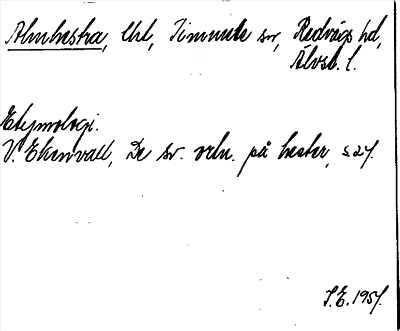 Almhestra, Uht, Timmele sn, Redvägs hd,
Älvsb. l.
Etymologi.
V. Ekenvall, De sv. ortn. på hester, s. 27.
S.E. 1957.